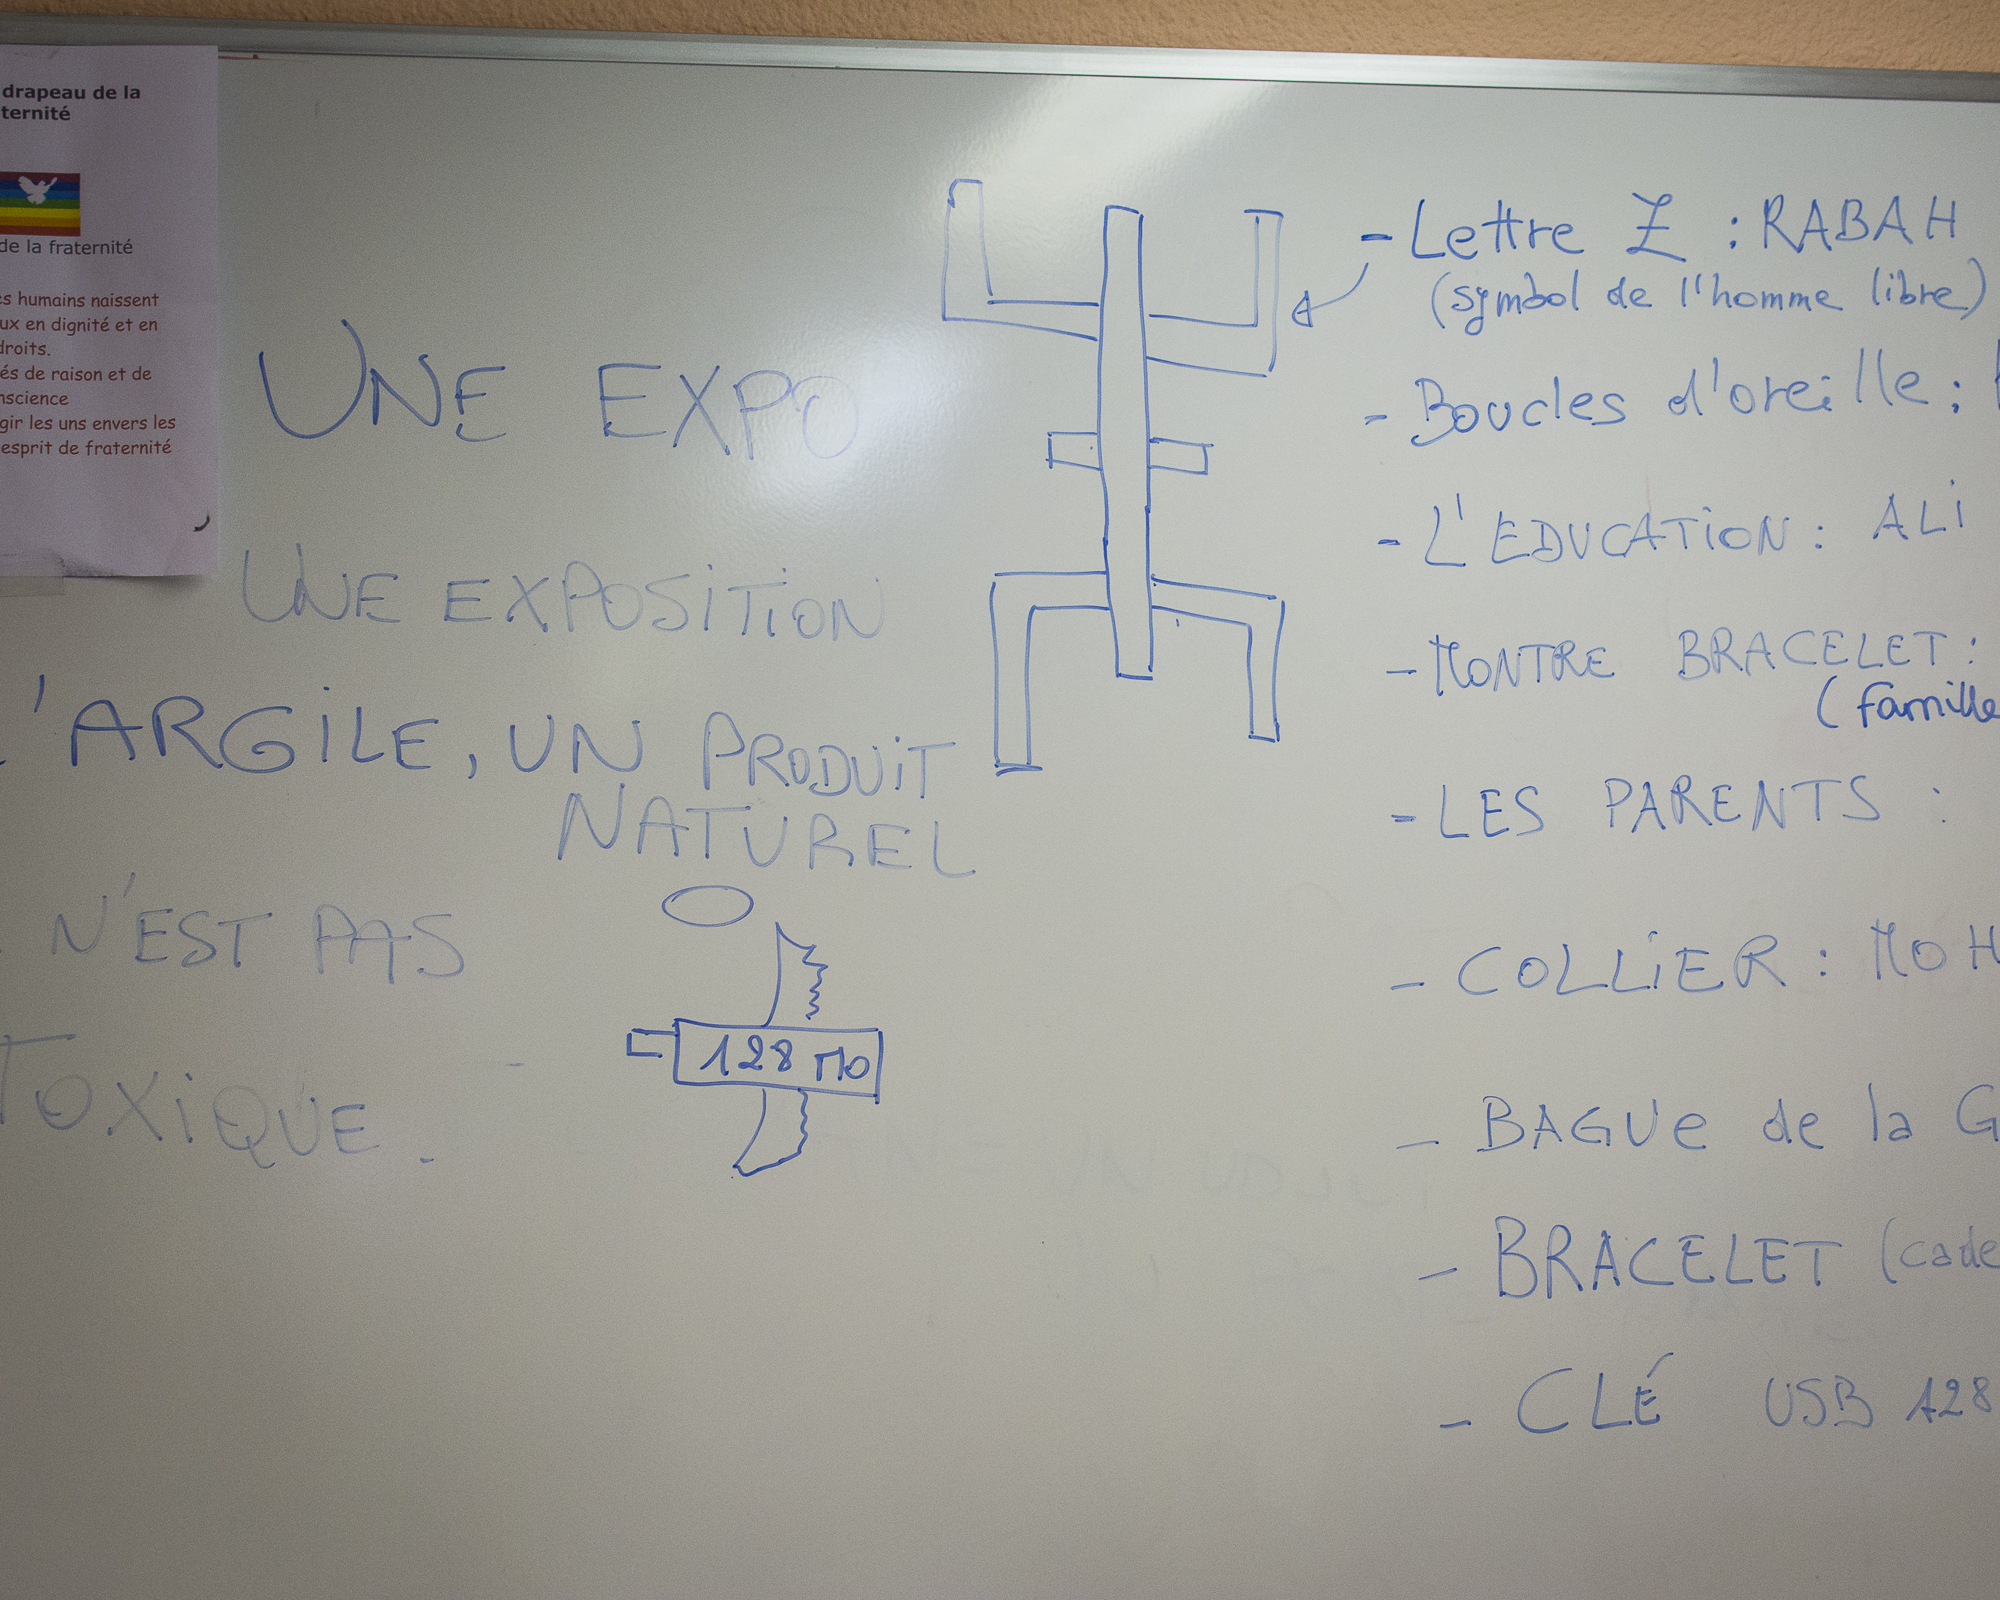 drapeau de la
ternité
de la fraternité
s humains naissent
ux en dignité et en
droits.
és de raison et de
nscience
gir les uns envers les
esprit de fraternité
UNE EXPO
UNE EXPOSITION
L'ARGILE, UN PRODUIT
NATUREL
N'EST PAS
TOXIQUE.
128 MO
- Lettre Z : RABAH
(symbol de l'homme libre)
- Boucles d'oreille :
- L'EDUCATION : ALI
- MONTRE BRACELET :
(famille
- LES PARENTS :
- COLLIER : MOH
- BAGUE de la G
- BRACELET (cade
- CLÉ USB 128